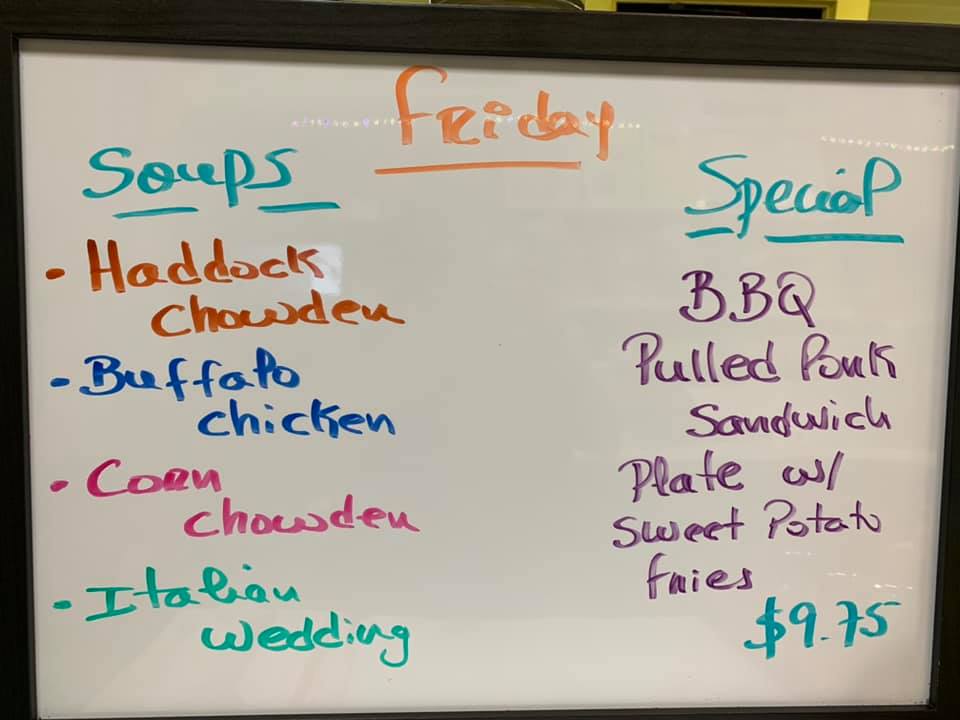 Friday
Soups
• Haddock
chowder
• Buffalo
chicken
• Corn
chowder
• Italian
wedding
Special
BBQ
Pulled Pork
Sandwich
Plate w/
Sweet Potato
fries
$9.75